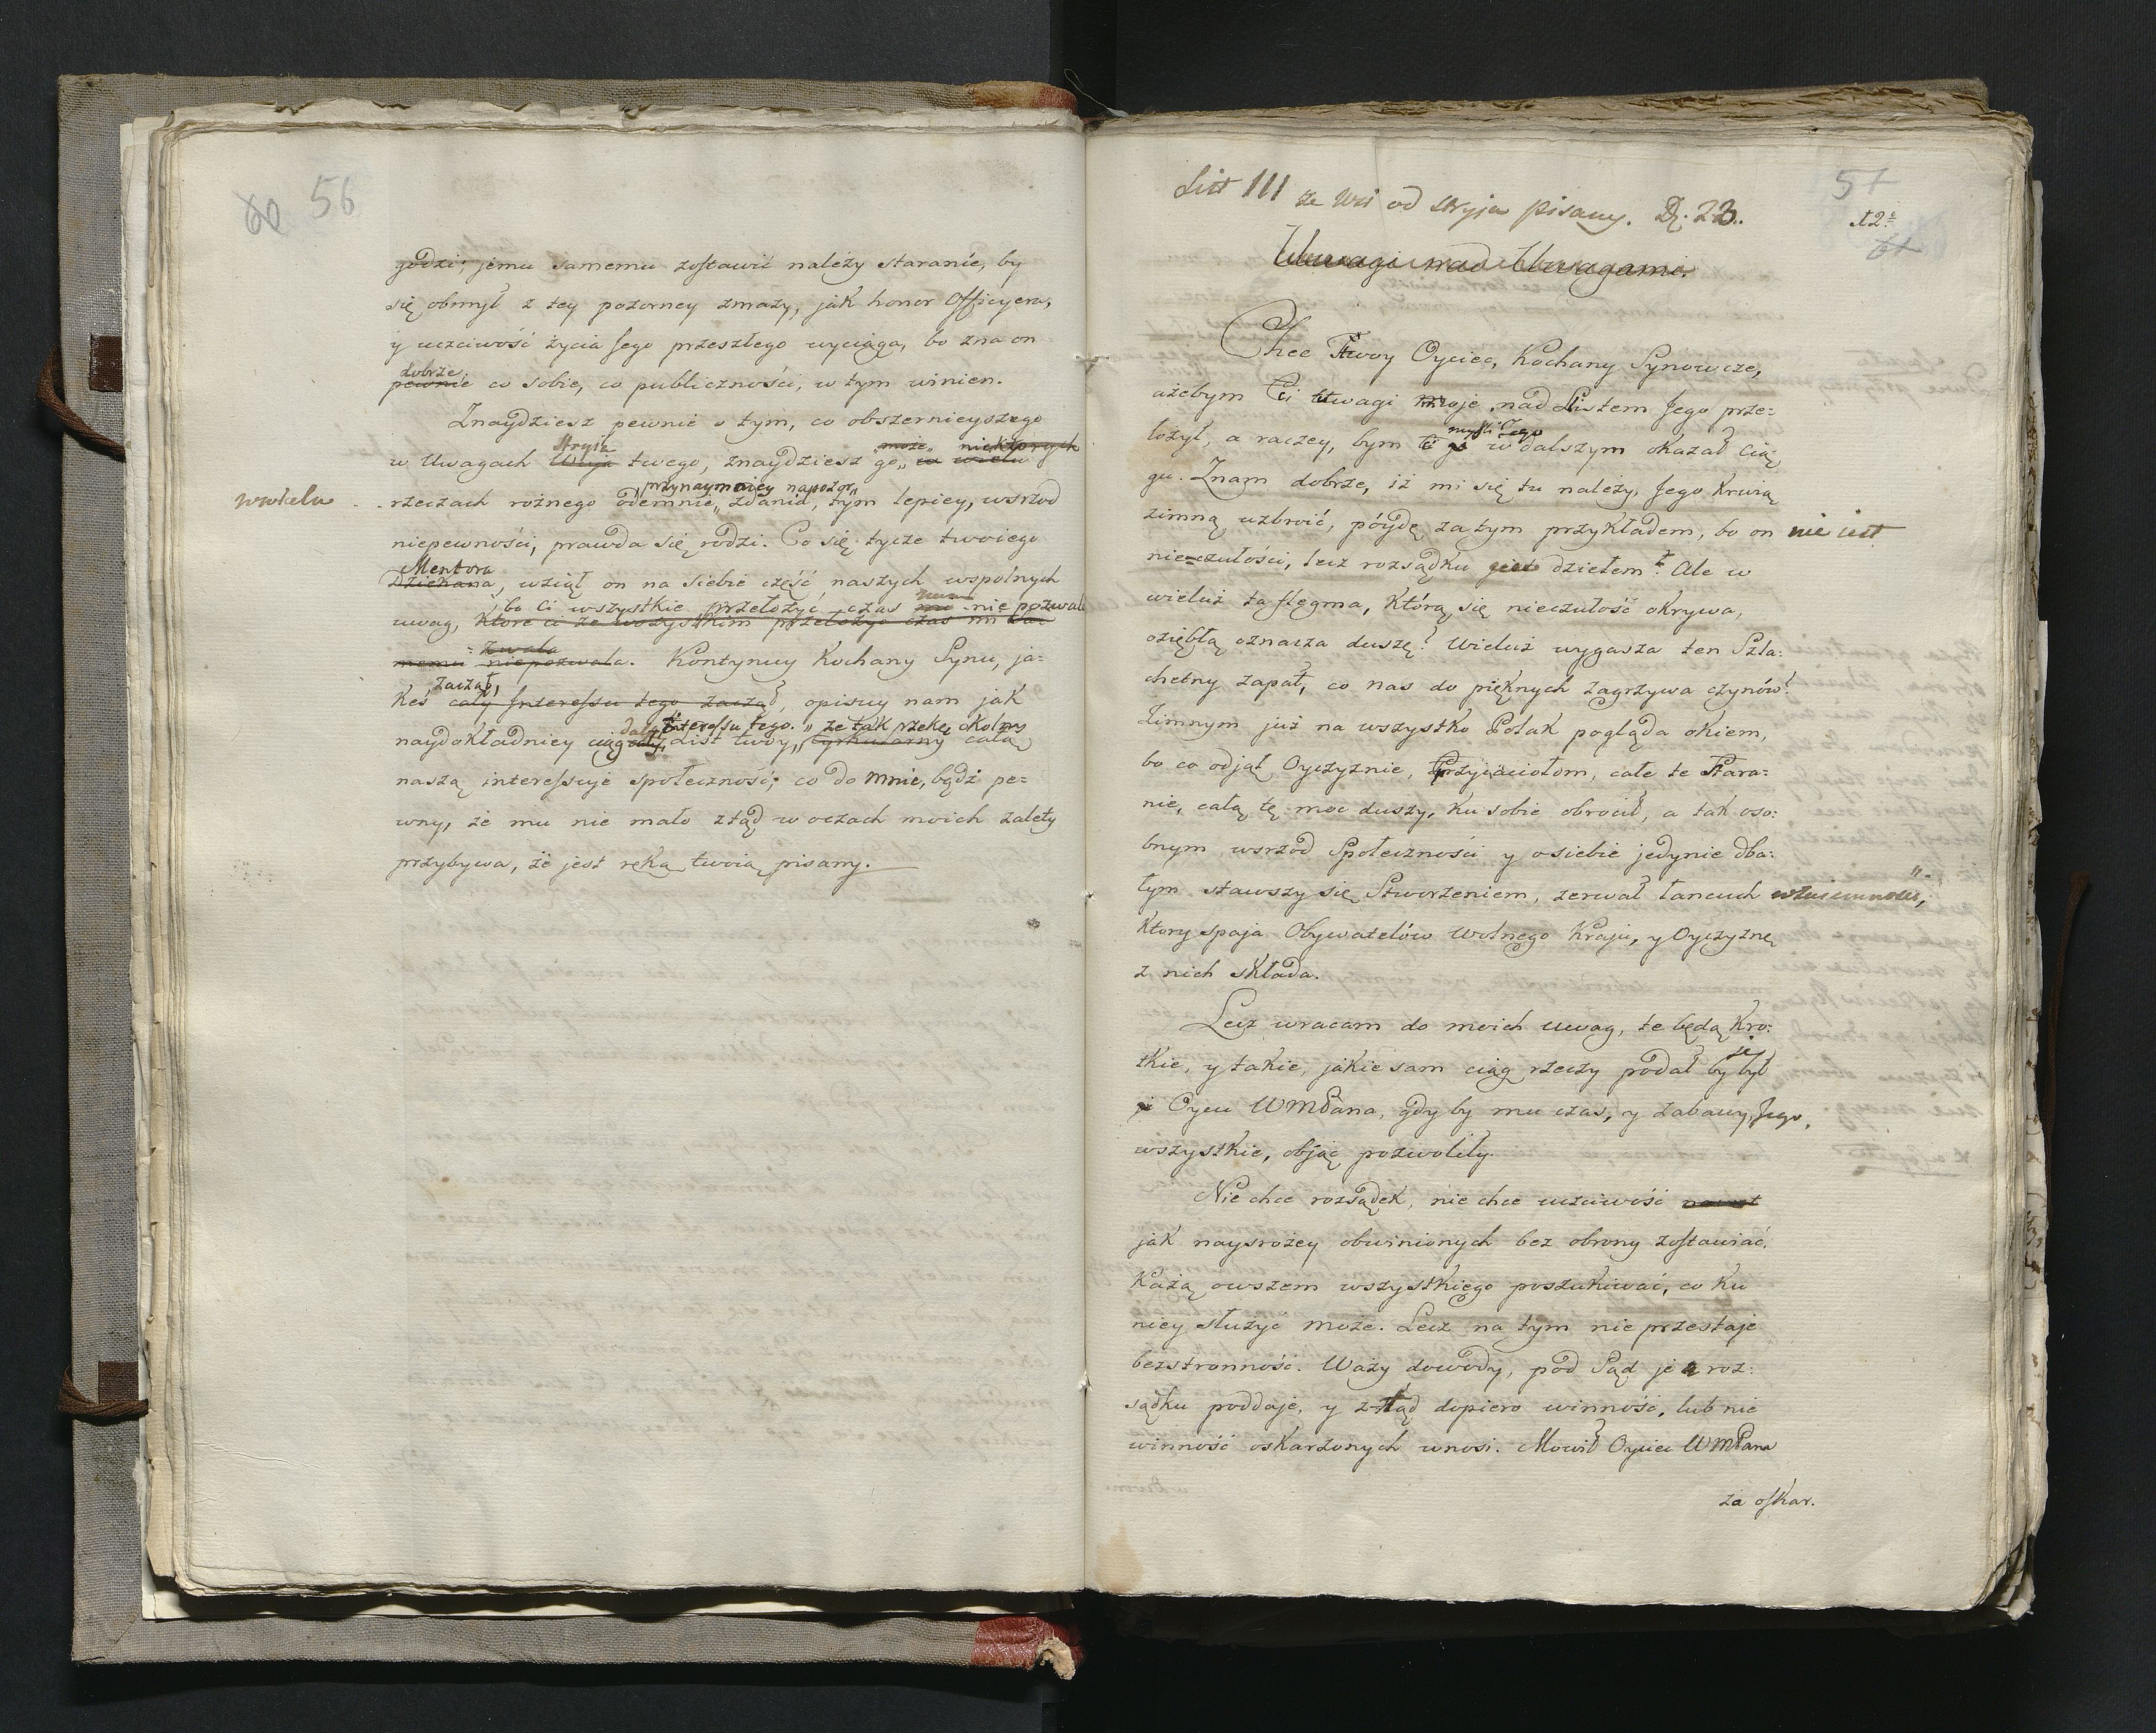 60 56
godzi; jemu samemu zostawić należy staranie, by
się obmył z tey pozorney zmazy, jak honor Officyera,
y uczciwość życia Jego przeszłego wyciąga, bo zna on
dobrze
pewnie co sobie, co publiczności, w tym winien.
Znaydziesz pewnie o tym, co obszernieyszego
Stryia może niektorych
w Uwagach Wuja twego, znaydziesz go, co wielu
przynaymniey napozor
w wielu rzeczach rożnego odemnie zdania, tym lepiey, wsrzod
niepewności, prawda się rodzi. Co się tycze twoiego
Mentora
Dziekana, wziął on na siebie część naszych wspolnych
bo ci wszystkie przełożyć czas mi nie pozwala
uwag, Ktore ci ze wszystkim przełożyć czas mi
zwala
memu niepozwala. Kontynuy Kochany Synu, ja-
zaczął,
Keś cały Interessu tego zaczął, opisuy nam jak
dalszy Interessu tego. ze tak rzekę okolny
naydokładniey ciąg cały, List twoy, cyrkularny całą
naszą interessuje społeczność; co do mnie, bądź pe-
wny, że mu nie mało ztąd w oczach moich zalety
przybywa, że jest ręką twoią pisany.
List III ze wsi od stryja pisany. D. 23.
57
12
61
Uwagi nad Uwagami.
Chce Twoy Oyciec, Kochany Synowcze,
ażebym Ci uwagi moje nad Listem Jego prze-
myśli Jego
łożył, a raczey, bym Ci go w dalszym okazał cią-
gu. Znam dobrze, iż mi się tu należy, Jego krwią
zimną uzbroić, póydę za tym przykładem, bo on nie jest
nieczułości, lecz rozsądku jest dziełem. Ale w
wieluż ta flegma, Którą się nieczułość okrywa,
oziębłą oznacza duszę? Wieluż wygasza ten Szla-
chetny zapał, co nas do pięknych zagrzywa czynów?
Zimnym już na wszystko Polak pogląda okiem,
bo co odjął Oyczyznie, Przyjaciołom, całe te stara-
nie, całą tę moc duszy, ku sobie obrocił, a tak oso-
bnym wsrzod Społeczności y o siebie jedynie dba-
łym stawszy się Stworzeniem, zerwał łancuch wzaiemności,
Ktory spaja Obywatelów wolnego Kraju, y Oyczyznę
z nich składa.
Lecz wracam do moich uwag, te będą Kro-
je
tkie, y takie, jakie sam ciąg rzeczy podał by był
Oycu WMPana, gdy by mu czas, y zabawy, Jego,
wszystkie, objąć pozwoliły.
Nie chce rozsądek, nie chce uczciwość nawet
jak naysrożey obwinionych bez obrony zostawiać.
Każą owszem wszystkiego poszukiwać, co ku
niey służyć może. Lecz na tym nie przestaje
bezstronność. Waży dowody, pod Sąd je roz-
sądku poddaje, y ztąd dopiero winność, lub nie
winność oskarżonych wnosi. Mowił Oyciec WMPana
za oskar.